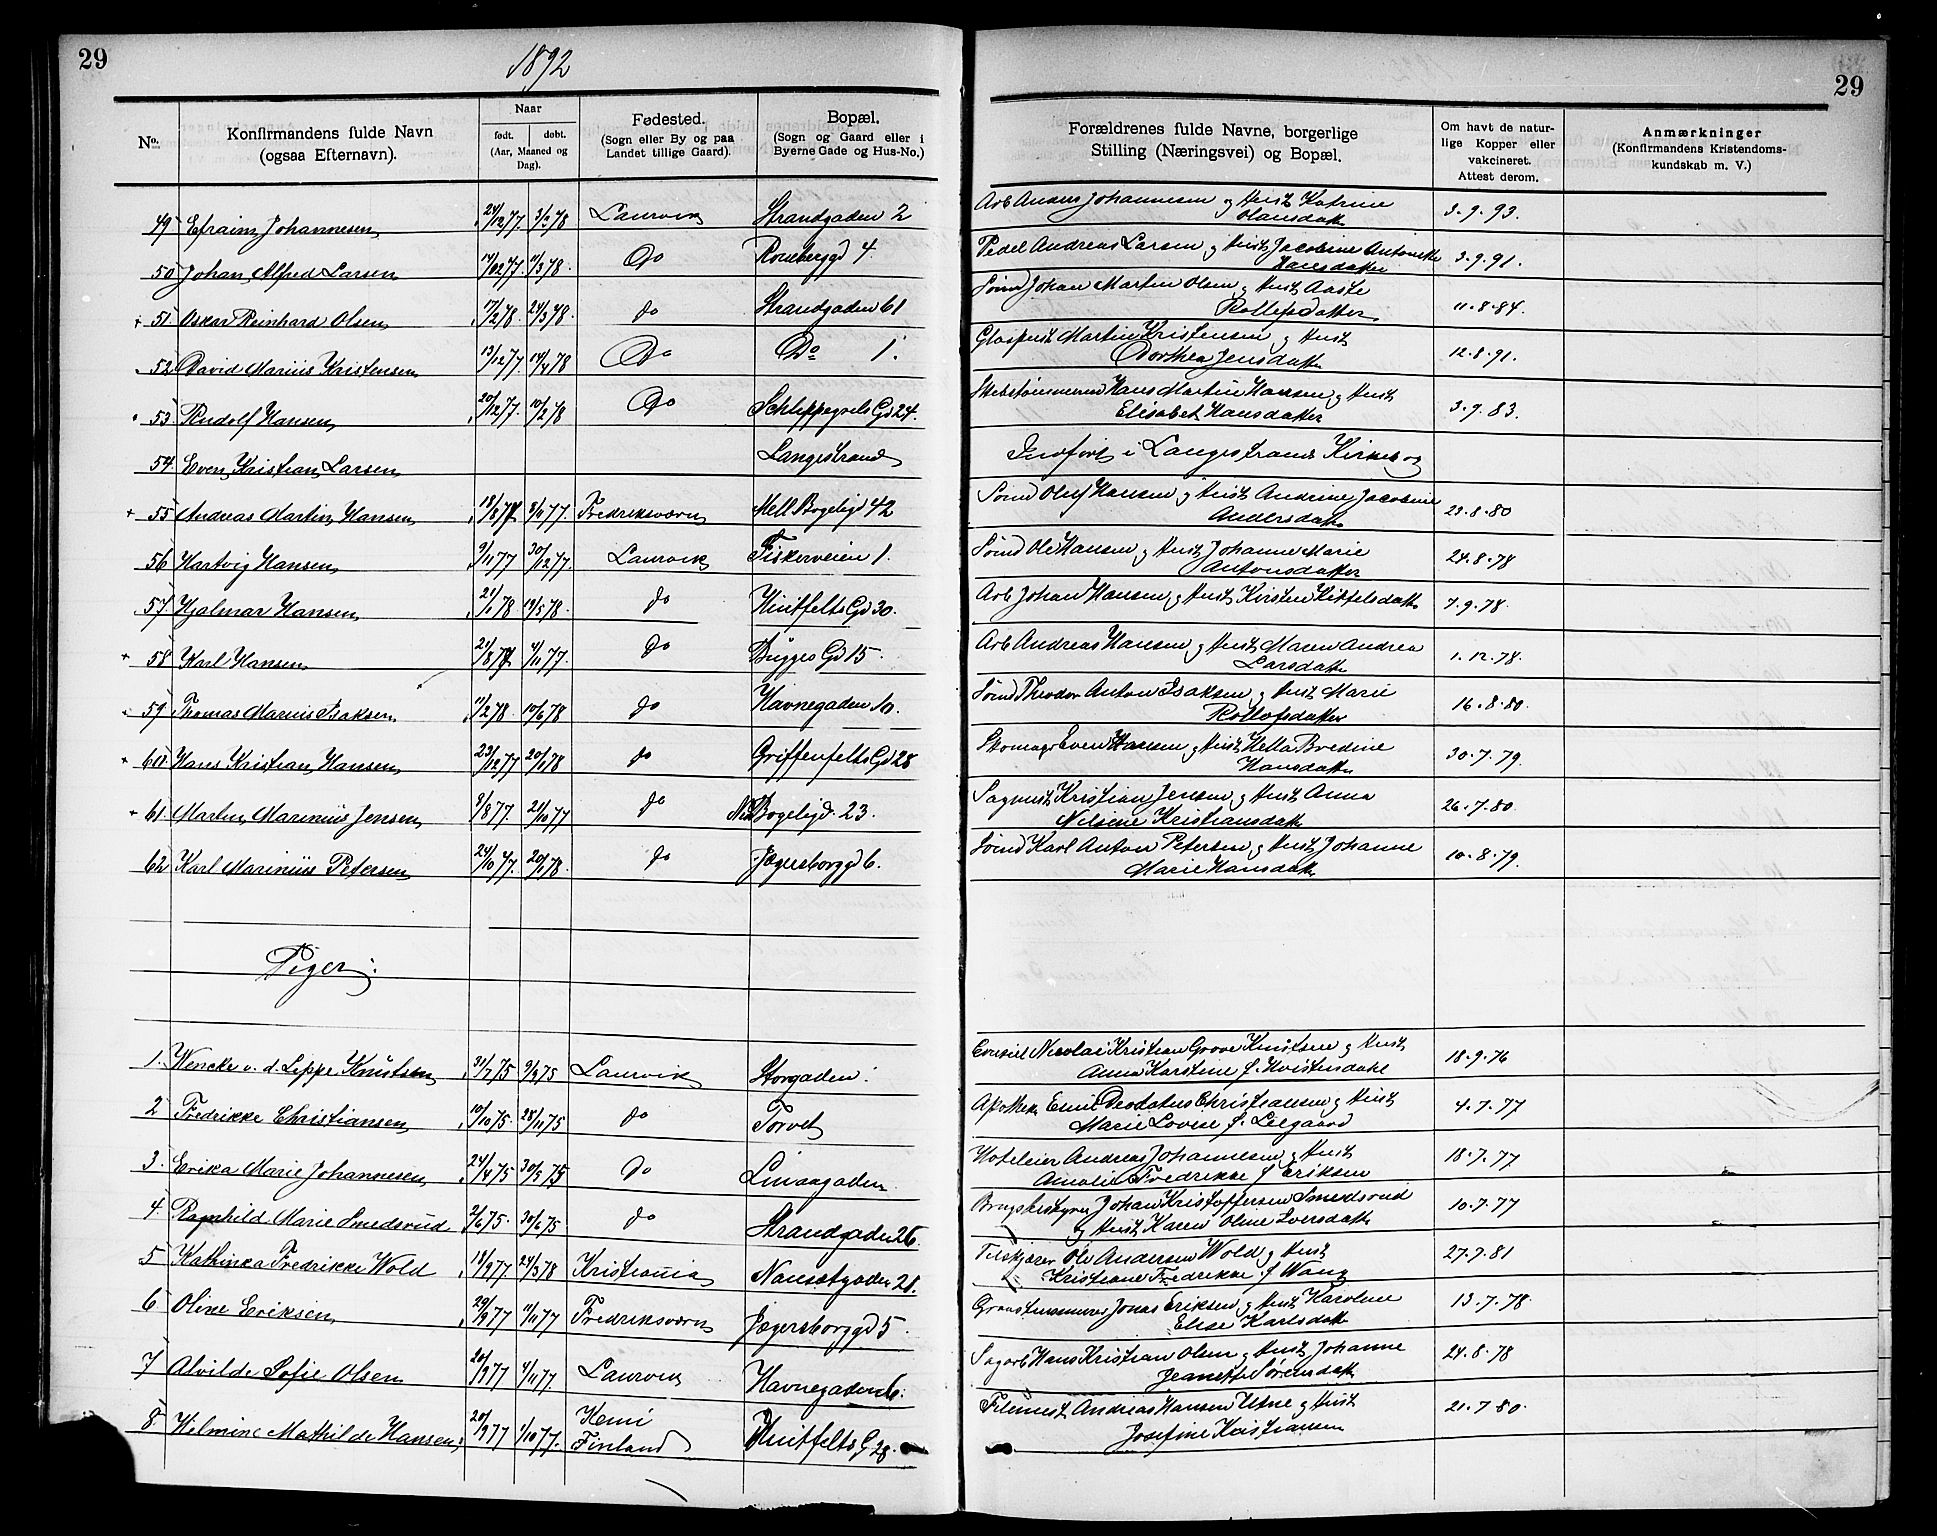 29
1892
29
No.
Konfirmandens fulde Navn
(ogsaa Efternavn).
Naar
født. døbt.
(Aar, Maaned og
Dag).
Fødested.
(Sogn eller By og paa
Landet tillige Gaard).
Bopæl.
(Sogn og Gaard eller i
Byerne Gade og Hus-No.)
Forældrenes fulde Navne, borgerlige
Stilling (Næringsvei) og Bopæl.
Om havt de natur-
lige Kopper eller
vakcineret.
Attest derom.
Anmærkninger
(Konfirmandens Kristendoms-
kundskab m. V.)
49 Efraim Johannesen 24/12 77 3/3 78 Laurvik Strandgaden 2 Arb Anders Johannesen og Hust Katrine
Olausdatt 3.9.93.
50 Johan Alfred Larsen 11/3 78 Do Roseberggd 4. Pedel Andreas Larsen og Hust Jacobine Antonette
Hansdatter 3.9.91.
51. Oskar Reinhard Olsen 17/2 78 24/3 78 do Strandgaden 61 Sømd Johan Martin Olsen og Hust Aaste
Rollefsdatter 11.8.84.
52 David Marius Kristensen 13/12 77 14/4 78 Do Do 1. Glaspust Martin Kristensen og Hust
Dorthea Jensdatt 12.8.91.
53. Rudolf Hansen 20/12 77. 10/2 78 Do Schleppegrels Gd 24. Skibstømmermd Hans Martin Hansen og Hust
Elisabet Hansdatter 3.9.83.
54. Even Kristian Larsen Langestrand Indført i Langestrands Kirkebog
55 Andreas Martin Hansen 18/8 77 8/11 77. Fredriksværn Mell Bøgeligd 42 Sømd Oluf Hansen og Hust Andrine Jacobine
Andersdatt 22.8.80
56 Hartvig Hansen 9/11 77 30/12 77. Laurvik Fiskerveien 1. Sømd Ole Hansen og Hust Johanne Marie
Antonsdatter 24.8.78
57 Hjalmar Hansen 21/1 78 19/5 78. do Huitfelts Gd 30. Arb Johan Hansen og Hust Kirsten Kittelsdatt 7.9.78.
58 Karl Hansen 21/8 77 4/11 77. do Bugges Gd 15. Arb Andreas Hansen og Hust Maren Andrea
Larsdatt 1.12.78.
59 Thomas Marius Isaksen 11/2 78. 10/6 78 do Havnegaden 10. Sømd Theodor Anton Isaksen og Hust Marie
Rollofsdatter 16.8.80.
60 Hans Kristian Hansen 23/12 77 20/1 78 do Griffenfelts Gd 28 Skomagr Even Hansen og Hust Hella Bredine
Hansdatt 30.7.79.
61. Martin Marinius Jensen 9/8 77. 21/10 77 do Ned Bøgeligd. 23. Sagmest Kristian Jensen og Hust Anna
Nilsine Kristiansdatt 26.7.80.
62 Karl Marinius Petersen 24/10 77. 20/1 78. do Jægersborggd 6. Sømd Karl Anton Petersen og Hust Johanne
Marie Hansdatt 10.8.79.
Piger.
1. Wencke v. d. Lippe Knutsen 31/7 75 9/9 75 Laurvik Storgaden Konsul Nicolai Kristian Grove Knutsen og Hust
Anna Karstine f. Hvistendahl 18.9.76
2 Fredrikke Christiansen 10/10 75. 28/11 75 do Torvet Apotheker Emil Deodatus Christiansen og Hust
Marie Lovise f. Leegaard 4.7.77
3. Erika Marie Johannesen 24/4 75 30/5 75 Do Linaagaden Hoteleier Andreas Johannesen og Hust
Amalie Fredrikke f Eriksen 18.7.77
4. Ragnhild Marie Smedsrud 2/6 75. 30/6 75 do Strandgaden 26. Brugsbestyrer Johan Kristoffersen Smedsrud
og Hust Karen Oline Iversdatt 10.7.77
5 Kathinka Fredrikke Wold 18/9 77 24/3 78 Kristiania Nansetgaden 28. Tilskjærer Ole Andersen Wold og Hust
Kristiane Fredrikke f Wang 27.7.81
6 Oline Eriksen 29/9 77 11/11 77 Fredriksværn Jægersborggd 5. Jonas Eriksen og Hust Karoline
Elise Karlsdatt 13.7.78.
7 Alvilde Sofie Olsen 20/9 77 4/11 77. Laurvik Havnegaden 6. Sagarb Hans Kristian Olsen og Hust Johanne
Jeanette Sørensdatt 24.8.78
8. Wilmine Mathilde Hansen 20/9 77 1/10 77. Kemi
Finland Huitfelts G 28. Andreas Hansen Utne og Hust
Josefine Kristiansen 21.7.80.